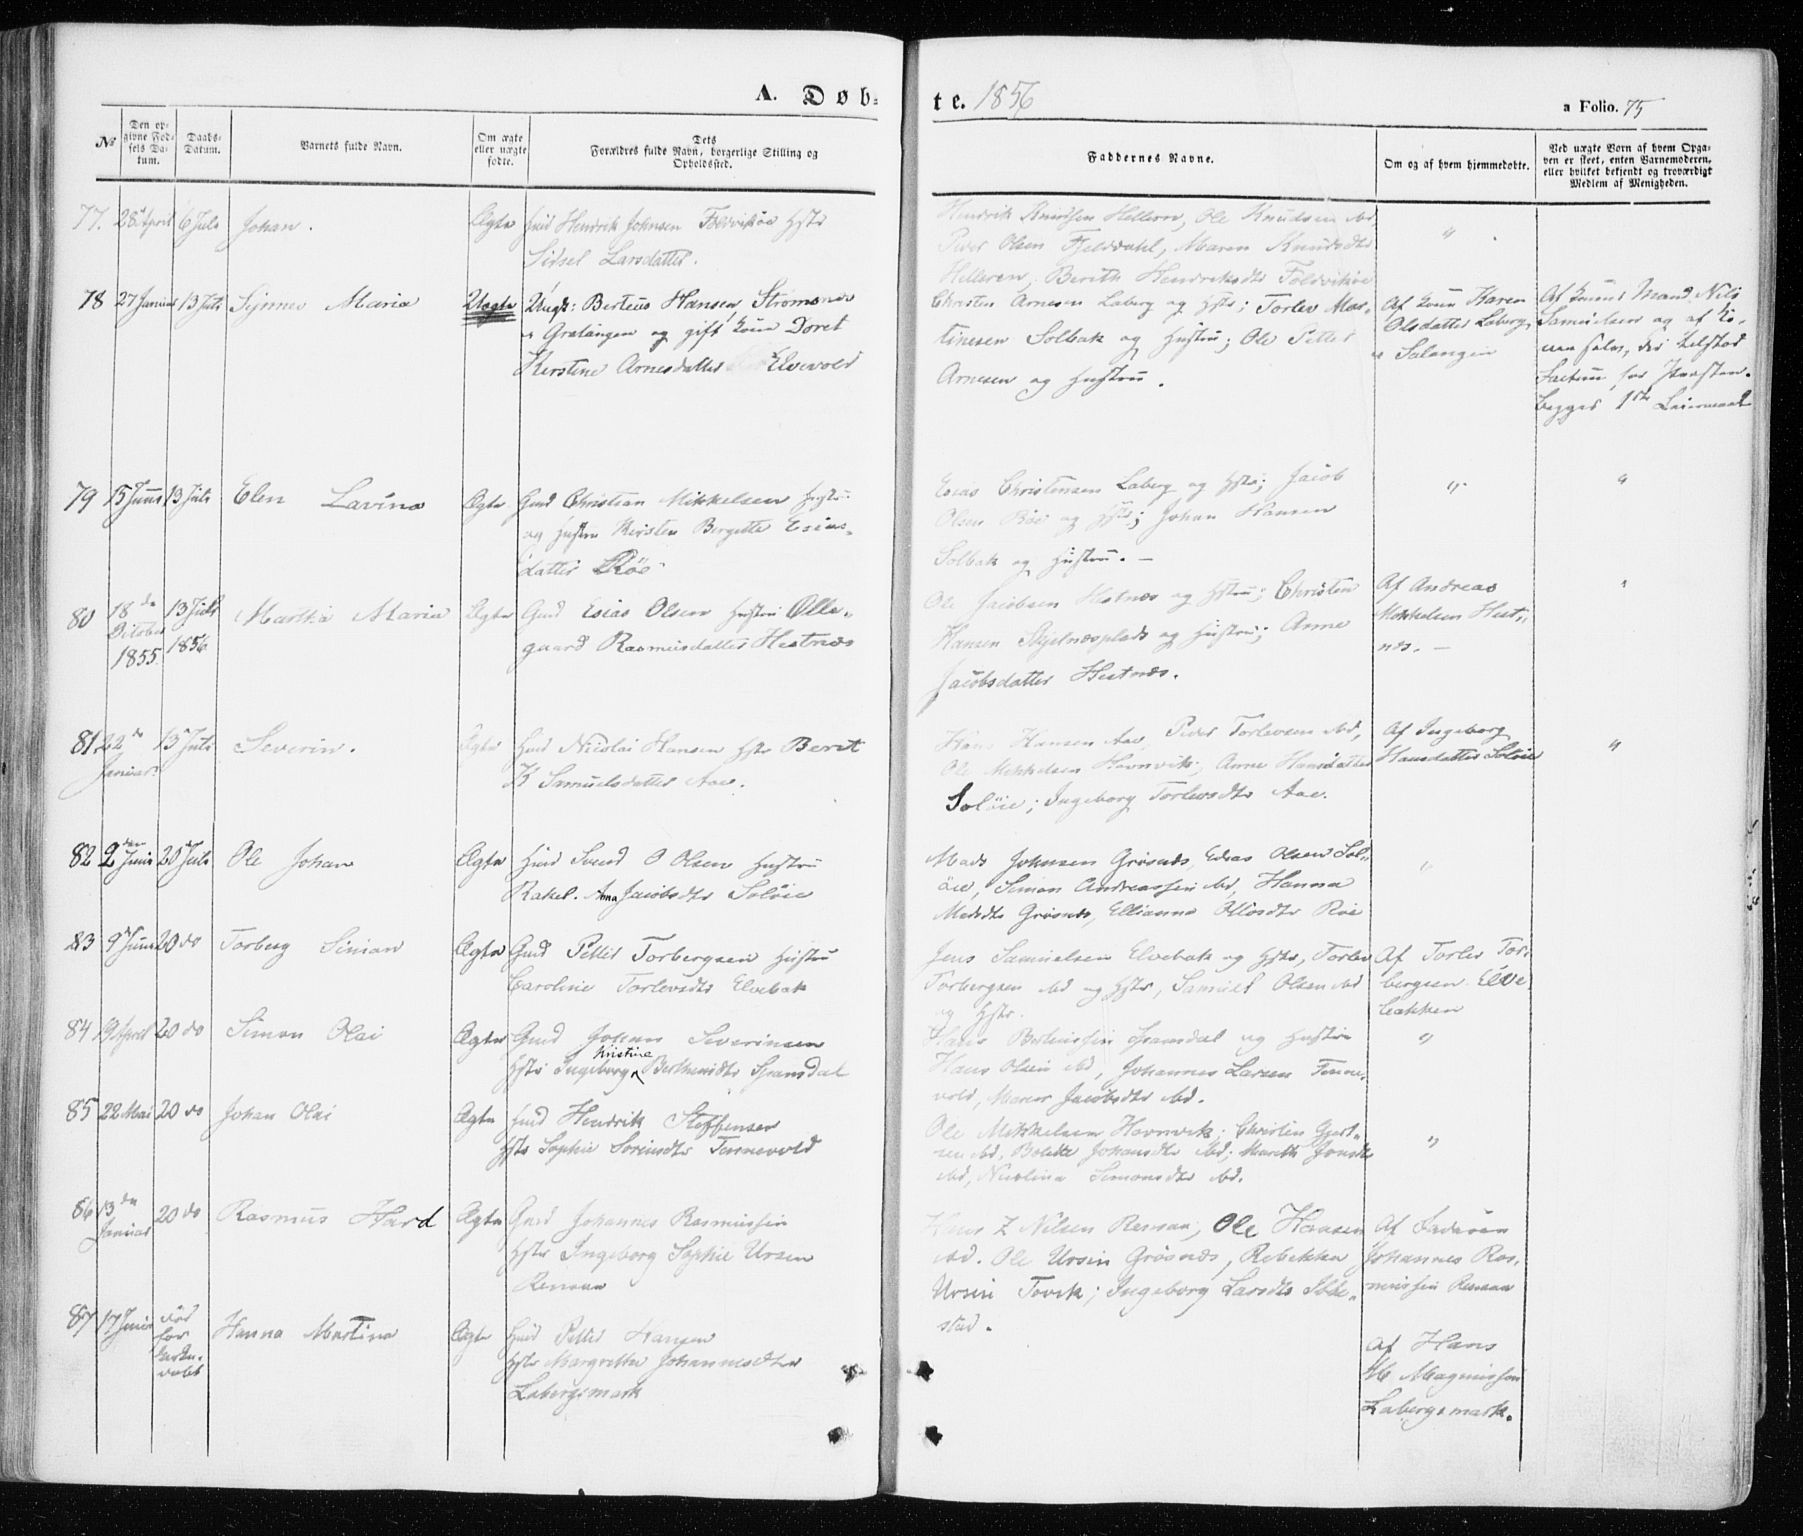 A. Døb-
te. 1856
a Folio. 75
№
Den op-
givne Fød-
sels Da-
tum.
Daabs-
Datum.
Barnets fulde Navn.
Om ægte
eller uægte
fødte.
Dets
Forældres fulde Navn, borgerlige Stilling og
Opholdssted.
Faddernes Navne.
Om og af hvem hjemmedøbte.
Ved uægte Børn af hvem Opga-
ven er skeet, enten Barnemoderen,
eller hvilket bekjendt og troværdigt
Medlem af Menigheden.
77. 28 April 6 Juli Johan. Ægte Hendrik Johnsen Foldvikøe Hstr
Sidsel Larsdatter.
Hendrik Knudsen Hellern, Ole Knudsen ibd,
Peder Olsen Fjelddahl, Maren Knudsdtr
Helleren, Berith Hendriksdtr Foldvikøe
"
78 27 Januar 13 Juli Synnev Maria Uægte Ungk: Berteus Hansen Strømsnes
Gratangen og gift Kone Doret
Kirstine Arnesdatter Elvevold
Christen Arnesen Laberg og Hstr; Torlev Mar-
tinesen Solbak og Hustru; Ole Petter
Arnesen og Hustru.
Af Kone Karen
Olsdatter Laberg
Salangen
Af hendes Mand Nils
Samuelsen og af Ko-
nen selv,
for Præsten.
begges 1ste Leiermaal
79 15 Juni 13 Juli Elen Lavina Ægte Gmd Christian Mikkelsen
og Hustru Kirsten Bergitte Esias-
datter Røe
Esias Christensen Laberg og Hstr; Jacob
Olsen Røe og Hstr; Johan Hansen
Solbak og Hustru. —
"
"
80 18 de
October
1855 13 Juli
1856 Martha Maria Ægte Gmd Esias Olsen Hustru Olle-
gaard Rasmusdatter Hestnæs
Ole Jacobsen Hestnæs og Hstru; Christen
Hansen Skjelnæsplads og Hustru; Anne
Jacobsdatter Hestnæs.
Af Andreas
Mikkelsen Hest-
næs. —
"
81 22 de
Januar 13 Juli Severin. Ægte Hmd Nicolai Hansen Hstr Berit
K Samuelsdatter Aae.
Hans Hansen Aae, Peder Torlevsen ibd,
Ole Mikkelsen Havnvik; Anne Hansdatter
Soløie; Ingeborg Torlevsdtr Aae.
Af Ingeborg
Hansdatter Soløie
"
82 2 den Juni 20 Juli Ole Johan Ægte Hmd Svend O Olsen Hustru
Rakel. Anna Jacobsdtr Soløie
Mads Johnsen Grøsnes, Esias Olsen Sol-
øie, Simon Andreassen ibd, Hanna
Madsdtr Grøsnes, Ellianna Olsdtr Røe
"
83 9 Juni 20 do Torberg Simon Ægte Gmd Petter Torbergsen Hustru
Caroline Torlevsdtr Elvebak
Jens Samuelsen Elvebak og Hstr, Torlev
Torbergsen ibd og Hstr, Samuel Olsen ibd
og Hstr.
Af Torlev Tor-
bergsen Elve
bakken
84 9 April 20 do Simon Olai Ægte Gmd Johan Severinsen
Hstr Ingeborg Kristine Bertheusdtr Spansdal
Hans Berteussen Spansdal og Hustru
Hans Olsen ibd, Johannes Larsen Tenne-
vold, Maren Jacobsdtr ibd.
"
85 22 Mai 20 do Johan Olai Ægte Hmd Hendrik Steffensen
Hstr Sophie Sørensdtr Tennevold
Ole Mikkelsen Havnvik; Christen
ibd, Bolette Johansdtr ibd; Mareth Jonsdtr
ibd, Nicolina Simonsdtr ibd.
"
86 13 de
Januar 20 do Rasmus Hard Ægte Gmd Johannes Rasmussen
Hstr Ingeborg Sophie Ursin
Renaa
Hans Z Nilsen Rensaa, Ole Hansen
ibd. Ole Ursin Grøsnæs, Rebekka
Ursin Tovik; Ingeborg Larsdtr Ibbe-
stad.
Af Faderen
Johannes Ras-
mussen Rensaa
87 17 Juni død
før
daab Hanna Martina Ægte Hmd Petter Hansen
Hstr Margretha Johannesdtr
Labergsmark
Af Hans
M Magnussen
Labergsmark.